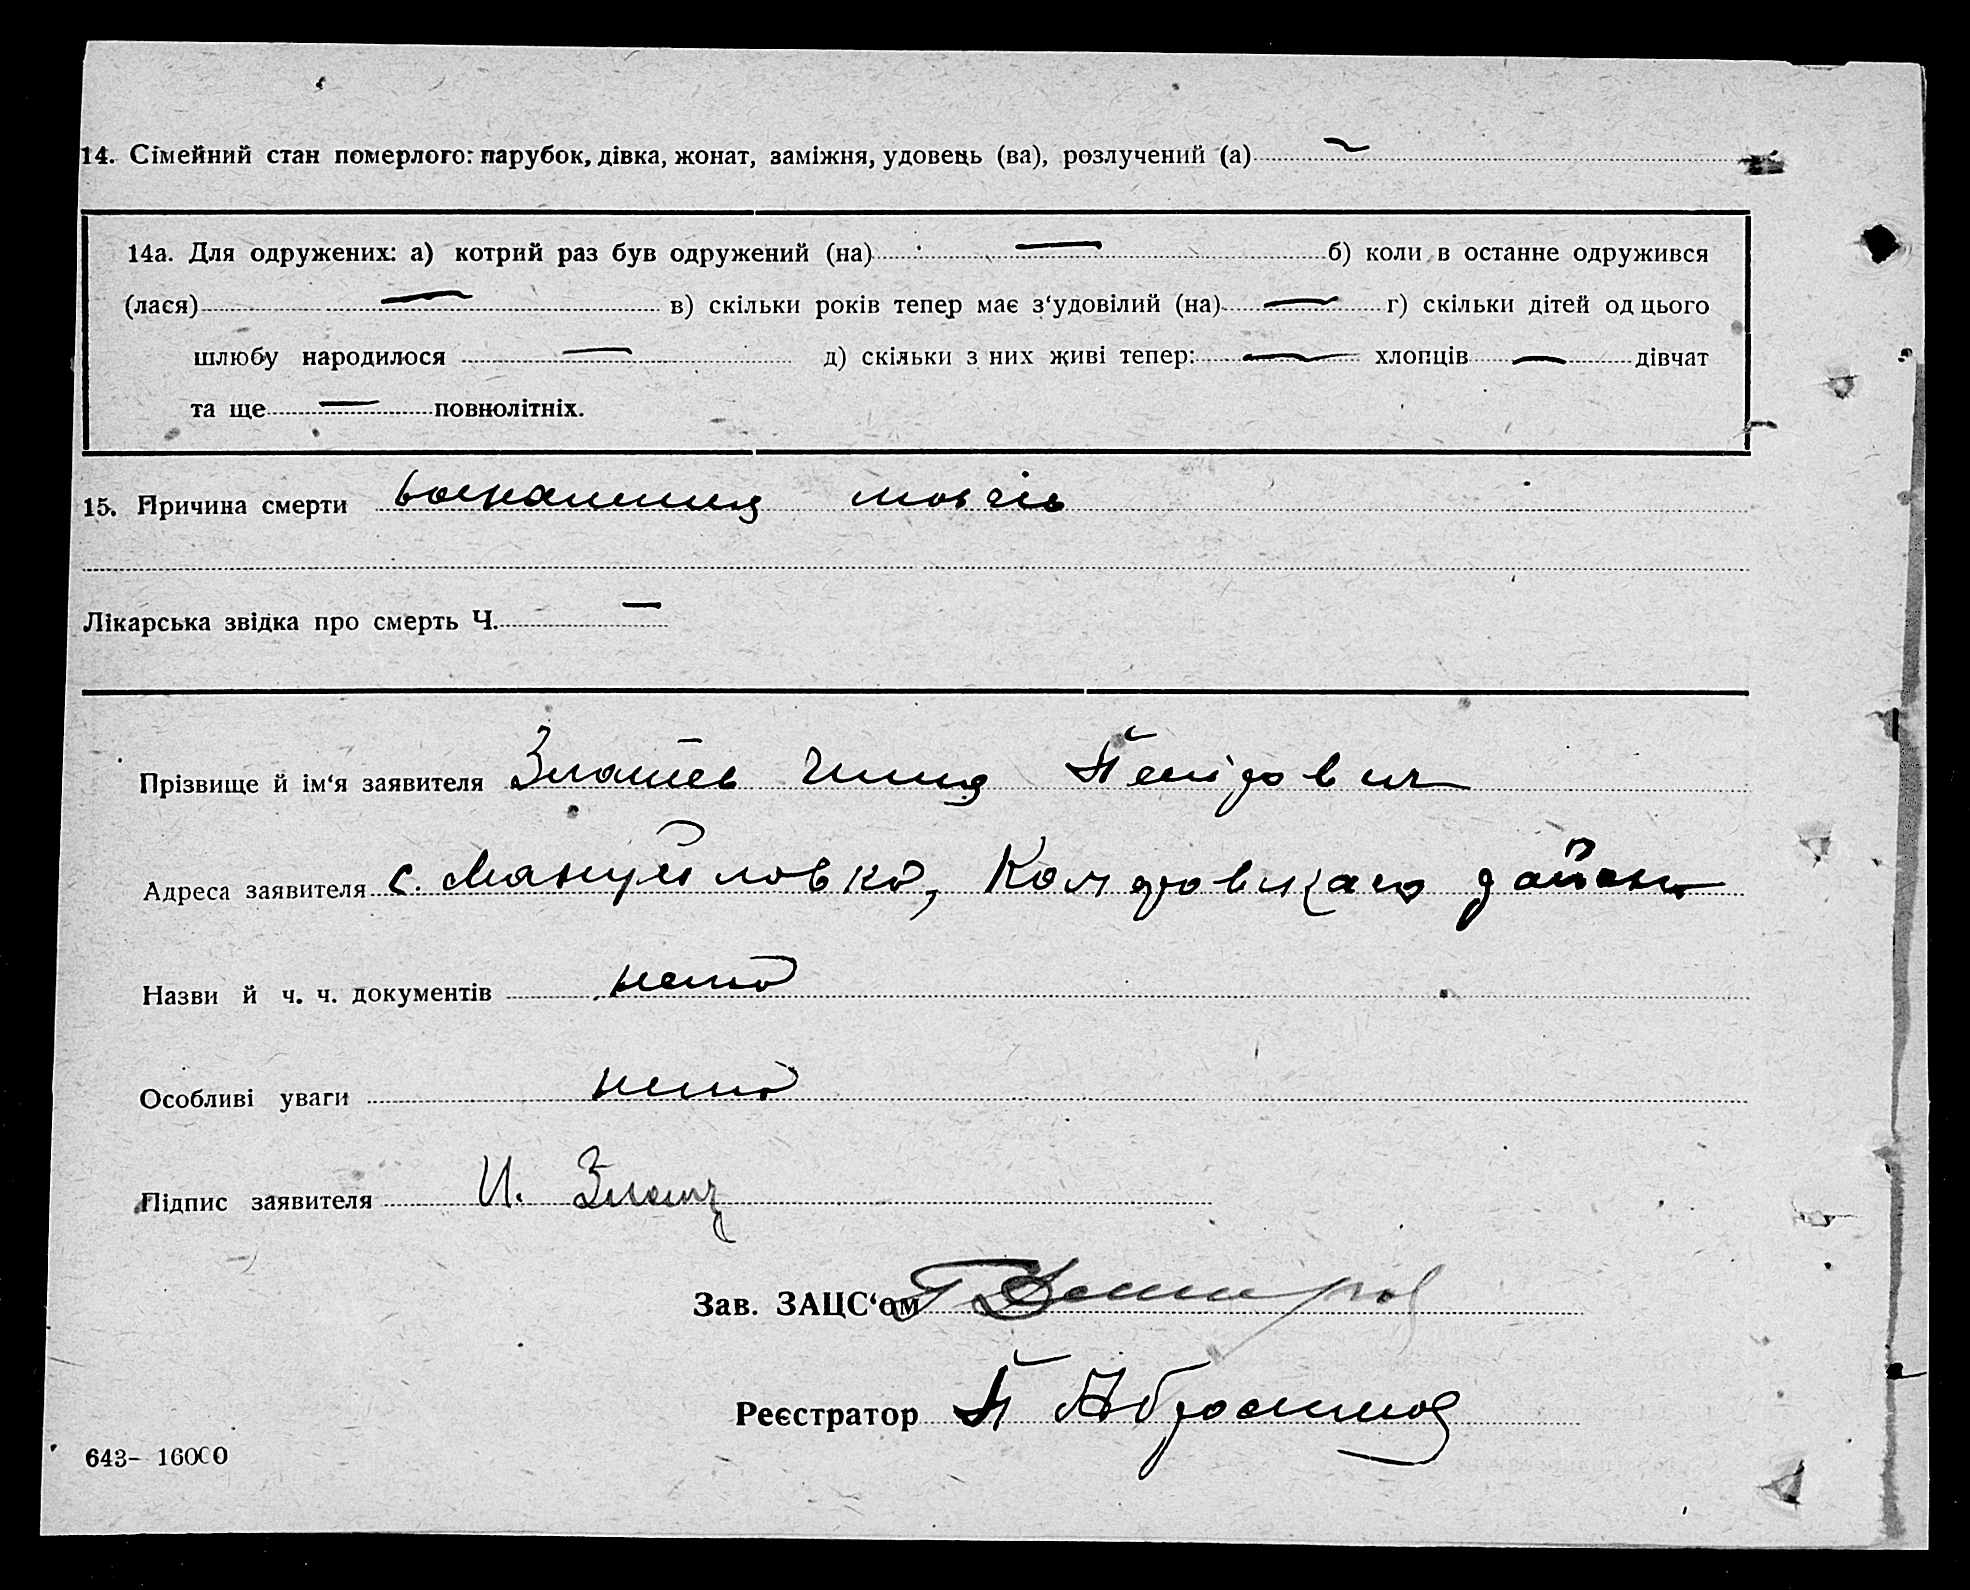 14. Сімейний стан померлого: парубок, дівка, жонат, заміжня, удовець (ва), розлучений (а)
14а. Для одружених: а) котрий раз був одружений (на) — б) коли в останне одружився
(лася) — в) скільки років тепер має з‘удовілий (на) — г) скільки дітей од цього
шлюбу народилося — д) скільки з них живі тепер: — хлопців — дівчат
та ще — повнолітніх.
15. Причина смерти
Лікарська звідка про смерть Ч. —
Прізвище й ім‘я заявителя
Адреса заявителя с. Мануйловка,
Назви й ч. ч. документів нема
Особливі уваги нема
Підпис заявителя И.
Зав. ЗАЦС‘ом
Реєстратор П Абросимов
643– 16000